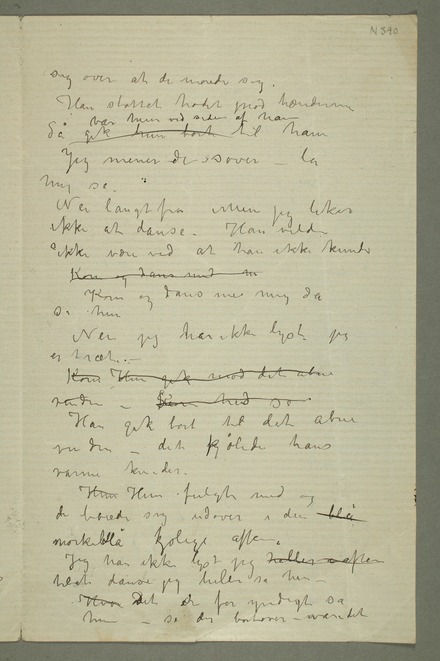 N 590
sig over at de morede sig.
Han støttet hodet mod hænderne
var hun ved siden af ham
Så gik hun bort til ham
Jeg mener De sover – la
mig se.
Nei langt fra men jeg liker
ikke at danse. Han vilde
ikke være ved at han ikke kunde
Kom og dans med
Kom og dans med mig da
sa hun
Nei jeg har ikke lyst jeg
er træt.–
Kom Hun gik mod det åbne
vindu –
Han gik bort til det åbne
vindu – det kjølede hans
varme kinder.
Hun Hun fulgte med og
de bøiede sig udover i den blå
mørkeblå kjølige aften.
Jeg har ikke lyst jeg heller
danse jeg heller sa hun –
Hvor Det er for yndigt sa
hun – se der bortover – vandet